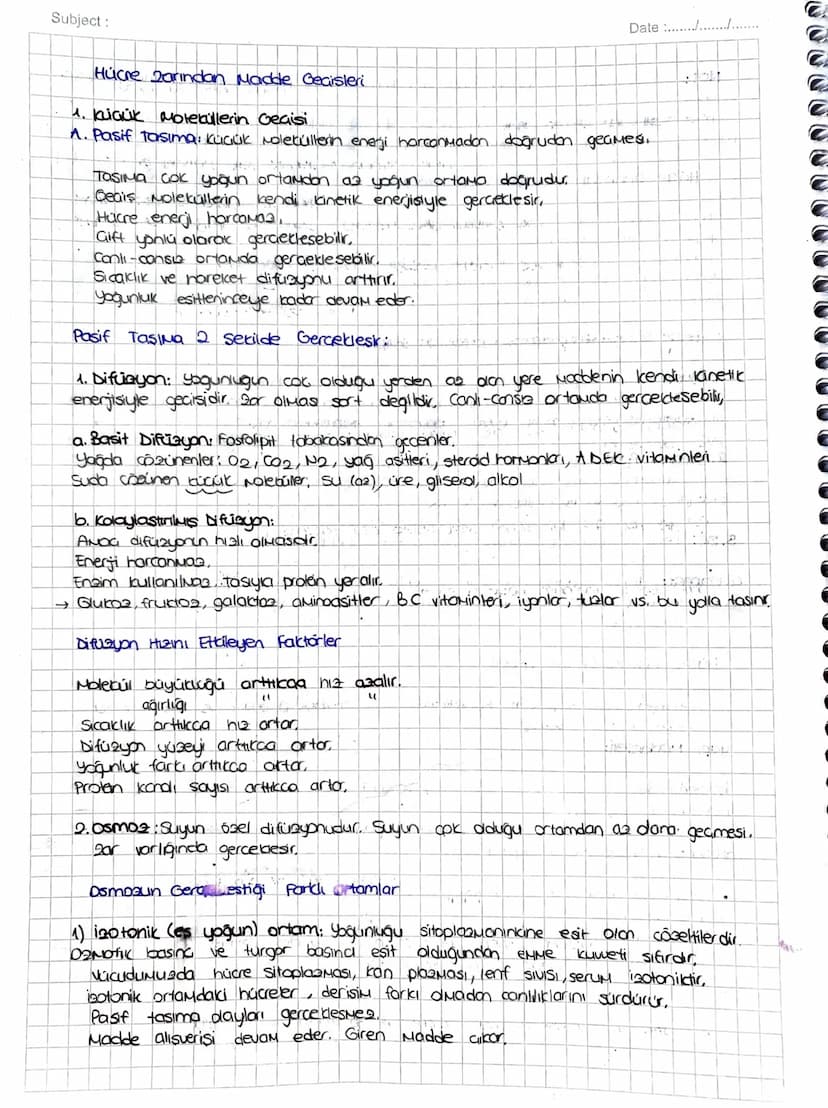 Subject :
Date :......./......./.......
Hücre Zarından Madde Geçişleri
1. Küçük Moleküllerin Geçişi
A. Pasif Taşıma: Küçük Moleküllerin enerji harcanmadan doğrudan geçmesi.
Taşıma çok yoğun ortamdan az yoğun ortama doğrudur.
Geçiş Moleküllerin kendi kinetik enerjisiyle gerçekleşir.
Hücre enerji harcamaz.
Çift yönlü olarak gerçekleşebilir.
Canlı-cansız ortamda gerçekleşebilir.
Sıcaklık ve hareket difüzyonu arttırır.
Yoğunluk eşitleninceye kadar devam eder.
Pasif Taşıma 2 Şekilde Gerçekleşir:
1. Difüzyon: Yoğunluğun çok olduğu yerden az olan yere Maddenin kendi kinetik
enerjisiyle geçişidir. Zar olması şart değildir. Canlı-cansız ortamda gerçekleşebilir.
a. Basit Difüzyon: Fosfolipit tabakasından geçenler.
Yağda çözünenler: O2, CO2, N2, yağ asitleri, steroid hormonları, ADEK vitaminleri
Suda çözünen küçük Moleküller, su (az), üre, gliserol, alkol
b. Kolaylaştırılmış Difüzyon:
Amaç difüzyonun hızlı olmasıdır.
Enerji harcanmaz.
Enzim kullanılmaz. Taşıyıcı protein yer alır.
→ Glukoz, fruktoz, galaktoz, aminoasitler, BC vitaminleri, iyonlar, tuzlar vs. bu yolla taşınır.
Difüzyon Hızını Etkileyen Faktörler
Molekül büyüklüğü arttıkça hız azalır.
ağırlığı " "
Sıcaklık arttıkça hız artar.
Difüzyon yüzeyi arttıkça artar.
Yoğunluk farkı arttıkça artar.
Protein kanalı sayısı arttıkça artar.
2. Osmoz: Suyun özel difüzyonudur. Suyun çok olduğu ortamdan az olana geçmesi.
Zar varlığında gerçekleşir.
Osmozun Gerçekleştiği Farklı Ortamlar
1) İzotonik (eş yoğun) ortam: Yoğunluğu sitoplazmanınkine eşit olan çözeltilerdir.
Ozmotik basınç ve turgor basıncı eşit olduğundan emme kuvveti sıfırdır.
Vücudumuzda hücre sitoplazması, kan plazması, lenf sıvısı, serum izotoniktir.
İzotonik ortamdaki hücreler, derişim farkı olmadan canlılıklarını sürdürür.
Pasif taşıma olayları gerçekleşmez.
Madde alışverişi devam eder. Giren Madde çıkar.